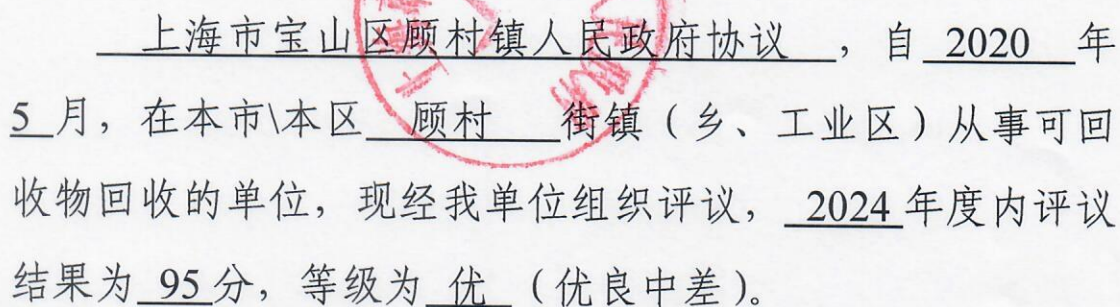 上海市宝山区顾村镇人民政府协议 ，自 2020 年
5 月，在本市\本区 顾村 街镇（乡、工业区）从事可回
收物回收的单位，现经我单位组织评议， 2024 年度内评议
结果为 95 分，等级为 优 （优良中差）。